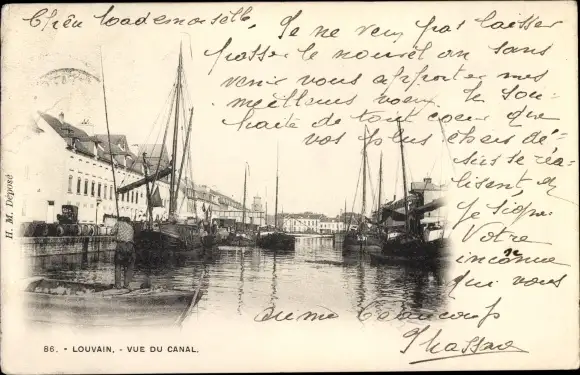 Chère Mademoiselle, Je ne veux pas laisser
passer le nouvel an sans
venir vous apporter mes
meilleurs voeux. Je sou-
haite de tout coeur que
vos plus chers dé-
sirs se réa-
lisent, et
je signe
Votre
inconnu
qui vous
aime beaucoup
H. M. Déposé
86. - LOUVAIN, - VUE DU CANAL.